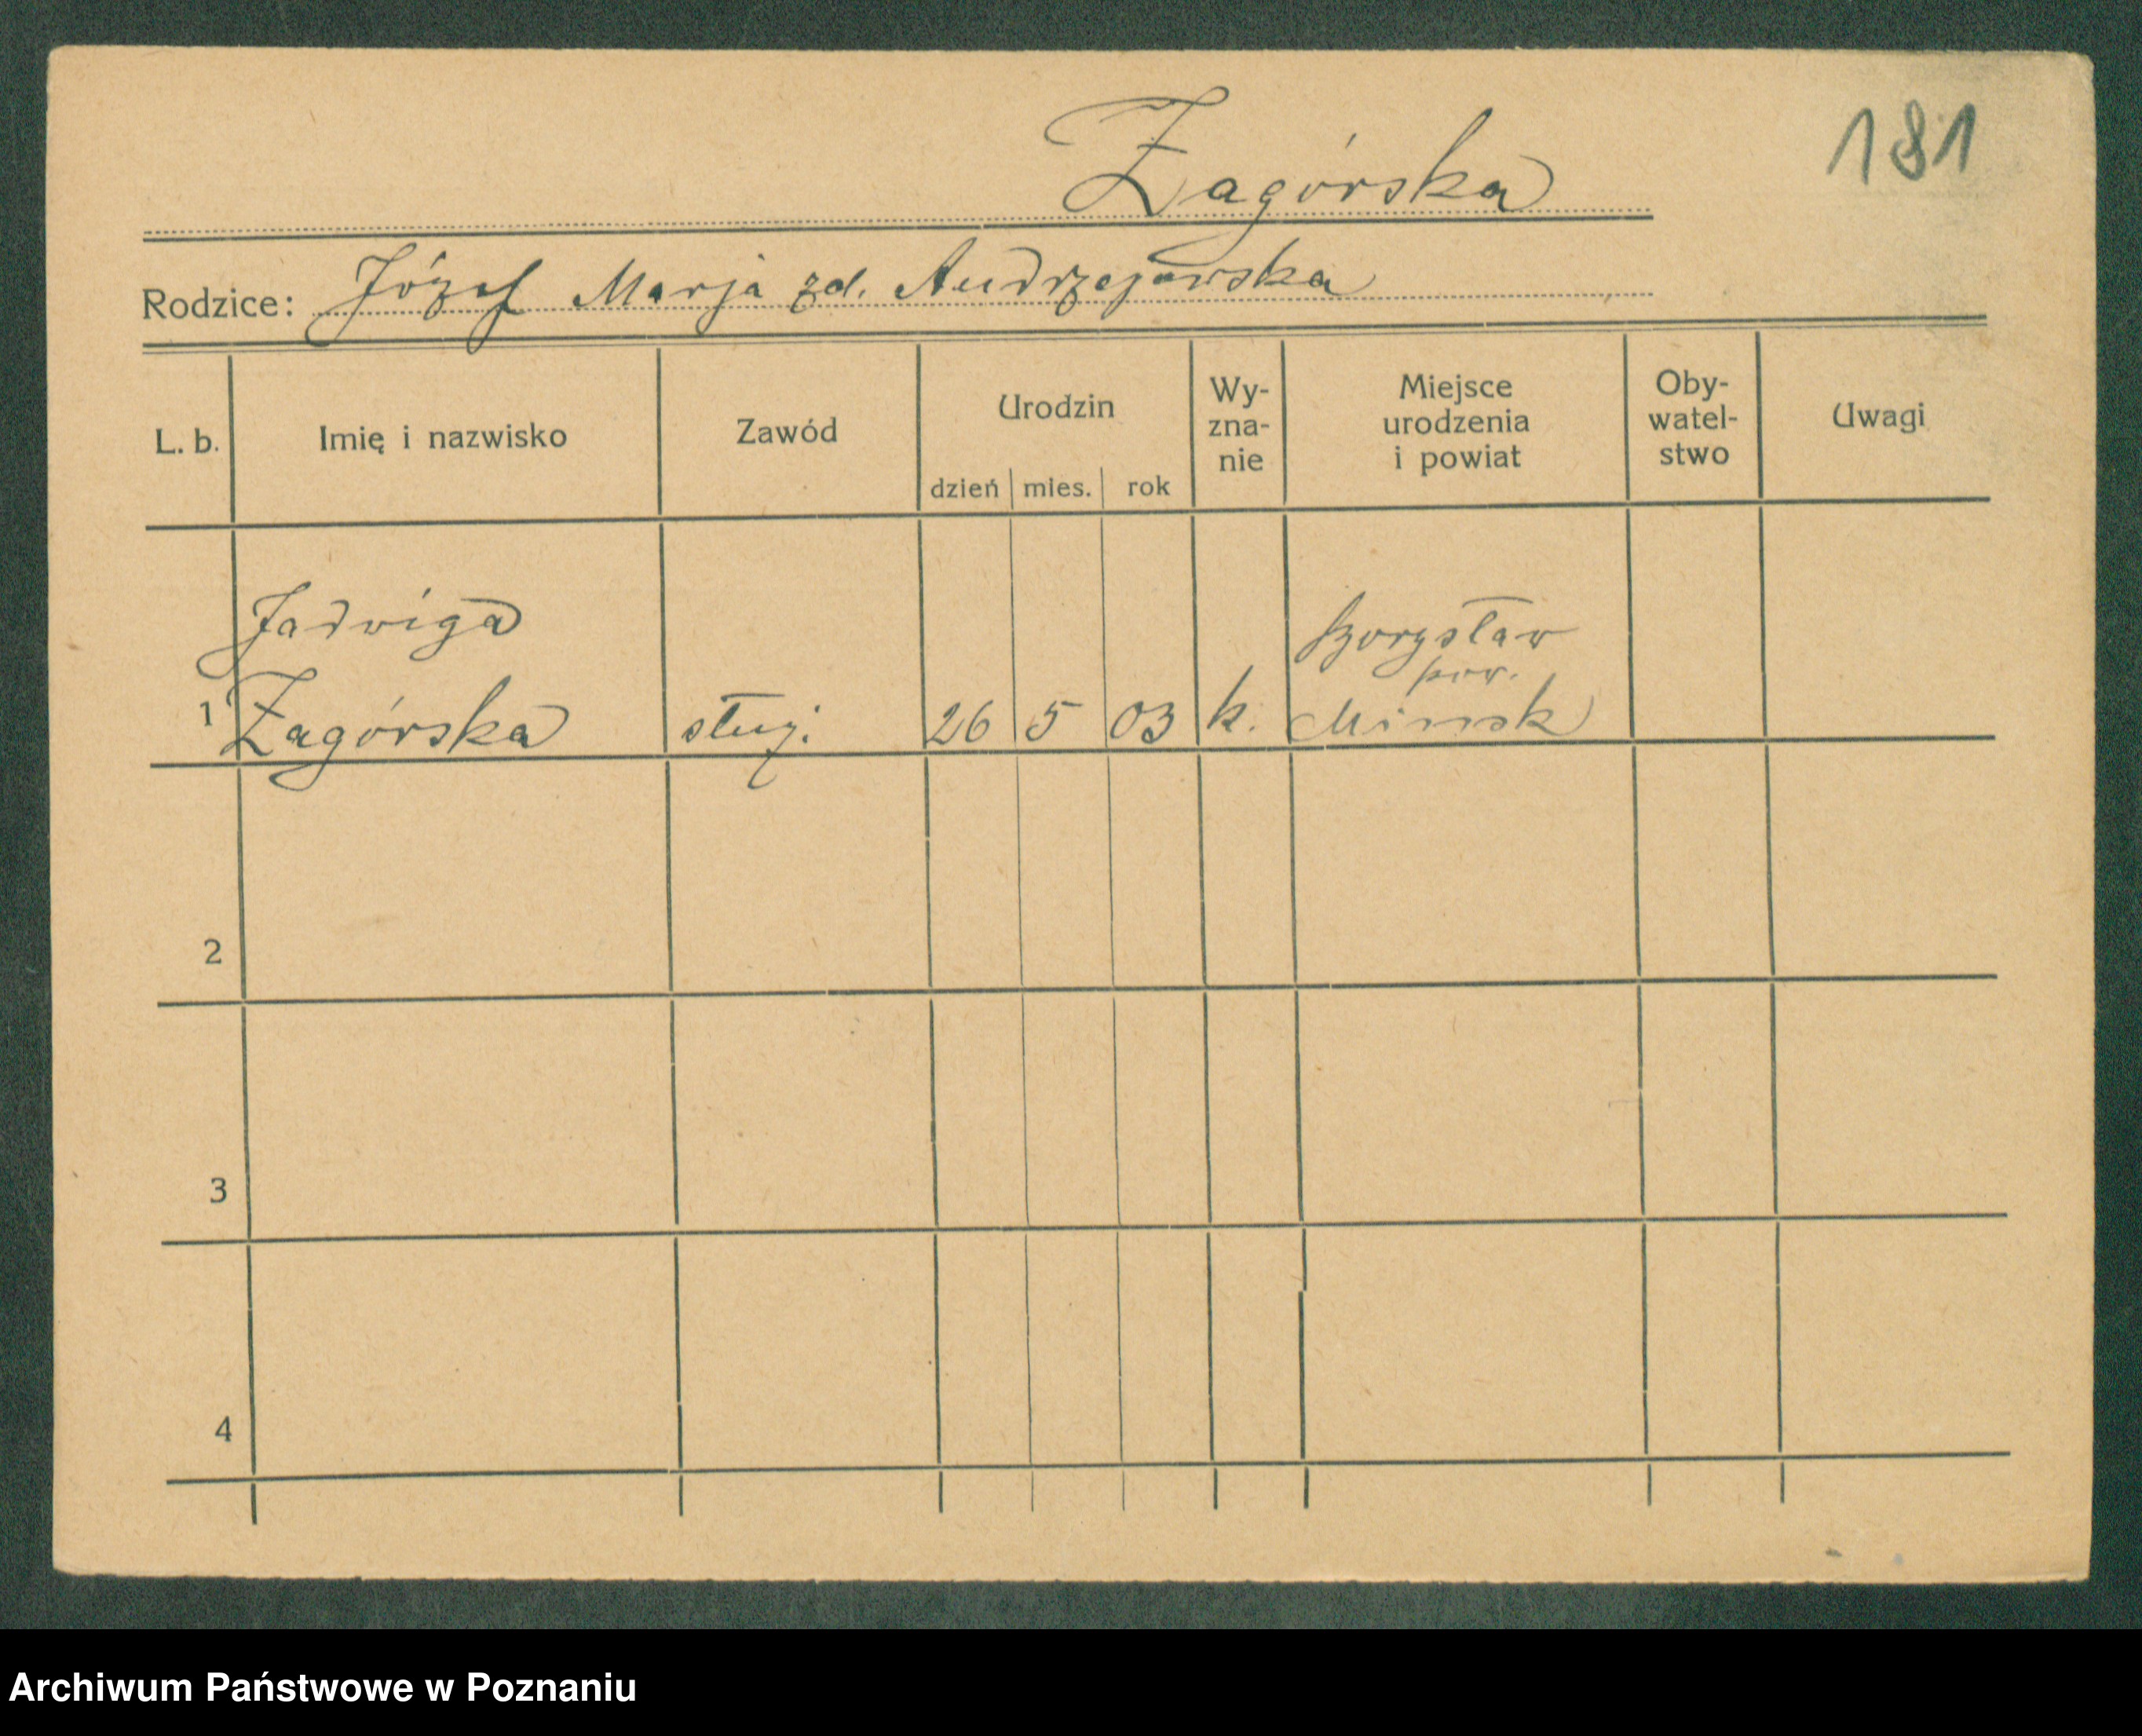 Zagórska
181
Rodzice: Józef Marja zd. Andrzejewska
L. b.
Imię i nazwisko
Zawód
Urodzin
dzień mies. rok
Wy-
zna-
nie
Miejsce
urodzenia
i powiat
Oby-
watel-
stwo
Uwagi
Jadwiga
Borysław
pow.
1 Zagórska służ. 26 5 03 k. Mińsk
2
3
4
Archiwum Państwowe w Poznaniu